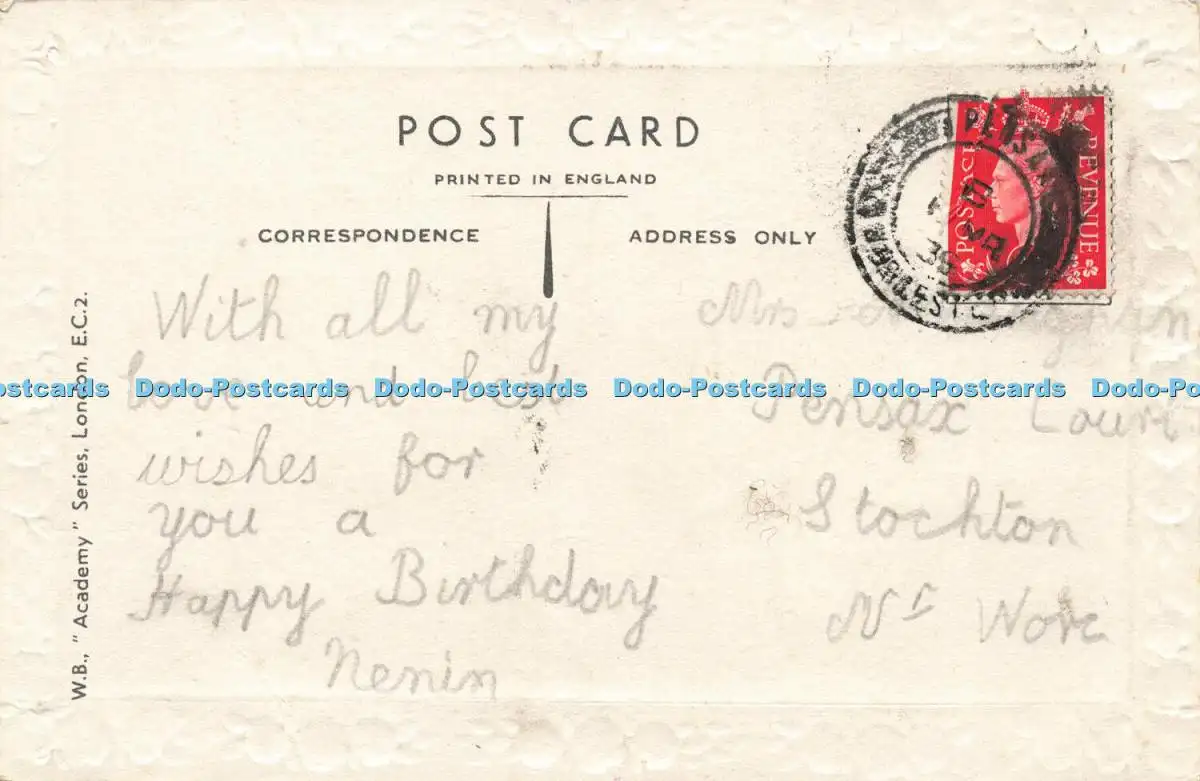 POST CARD
PRINTED IN ENGLAND
CORRESPONDENCE
ADDRESS ONLY
POSTAGE REVENUE
With all my
love and best
wishes for
you a
Happy Birthday
Nenin
Mrs
Pensax Court
Stockton
Nr Worc
W.B., "Academy" Series, London, E.C.2.
Dodo-Postcards Dodo-Postcards Dodo-Postcards Dodo-Postcards